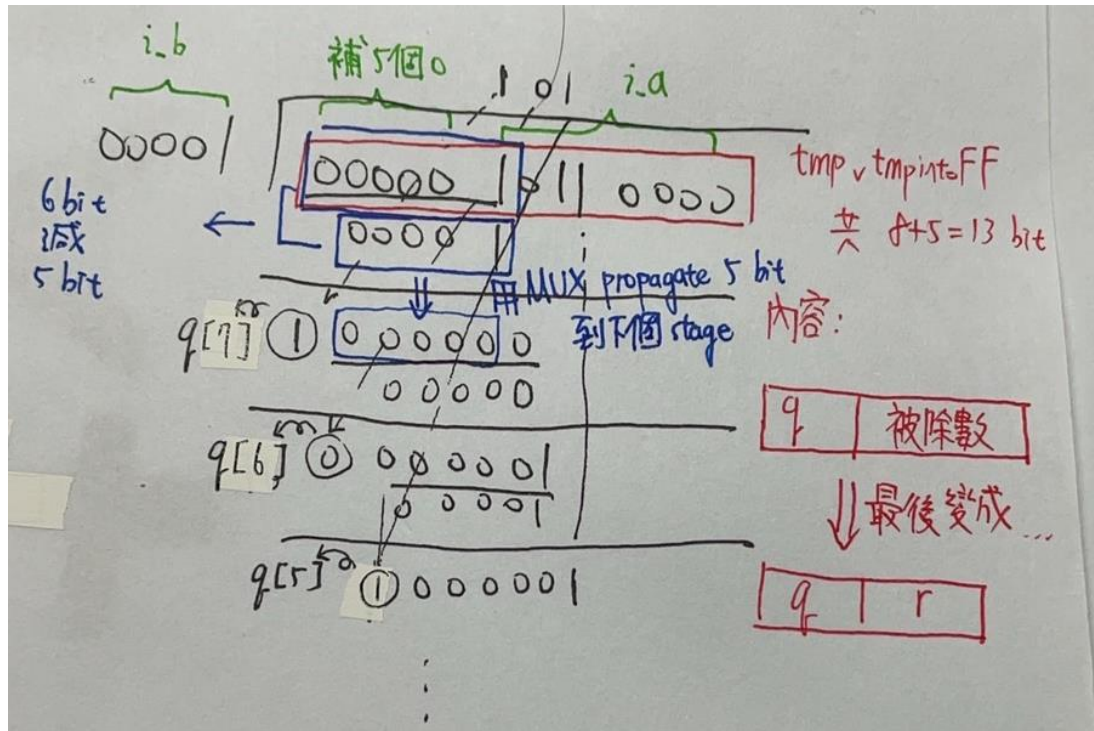 i_b
補5個0
1 01
i_a
00001
00000 1011 0000
tmp、tmpintoFF
共 8+5=13 bit
6 bit
減
5 bit
←
00001
⇓ 用 MUX propagate 5 bit
到下個 stage
內容:
q[7] 1 000000
00000
q 被除數
q[6] 0 000001
00001
⇓ 最後變成...
q[5] 1 000001
q r